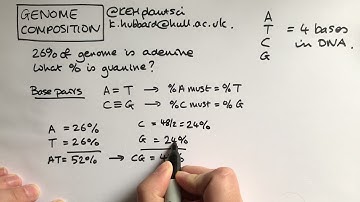 GENOME
COMPOSITION
@KEHplantsci
k.hubbard@hull.ac.uk.
A
T
C
G
= 4 bases
in DNA.
26% of genome is adenine
What % is guanine?
Base pairs
A=T → %A must = %T
C≡G → %C must = %G
A = 26%
T = 26%
AT = 52% → CG = 4
C = 48/2 = 24%
G = 24%